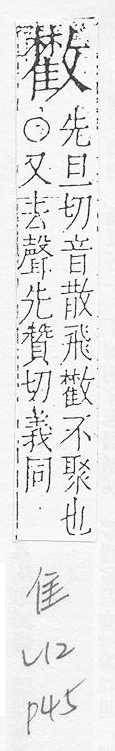 𢿱
先旦切音散飛𢿱不聚也
○又去聲先贊切義同
隹
U12
p45